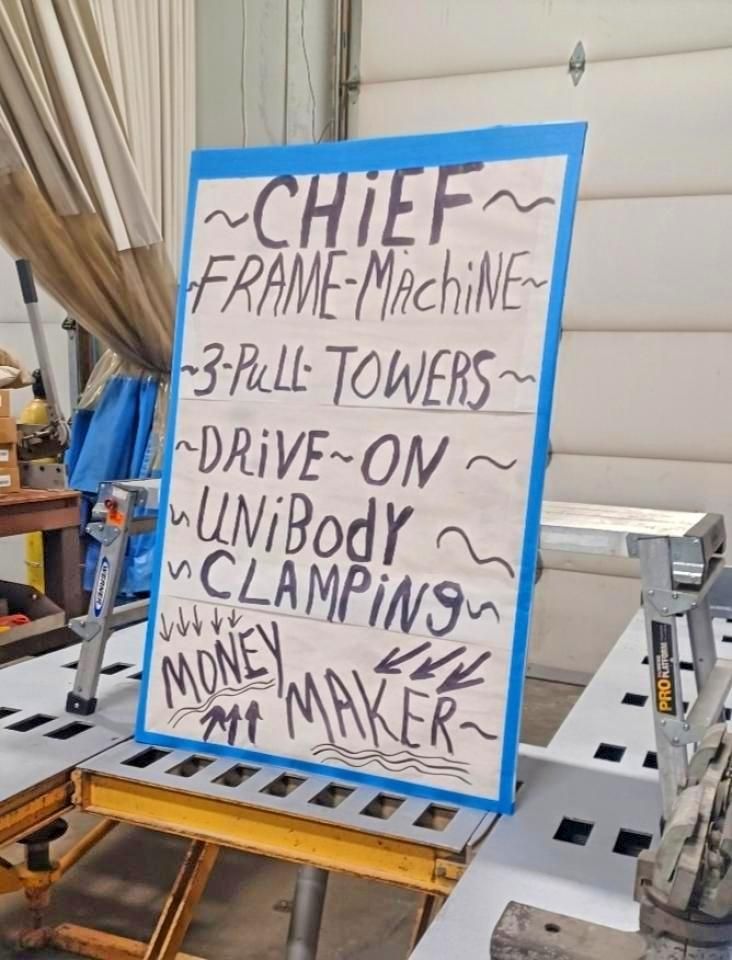 ~CHiEF~
~FRAME-MAchiNE~
~3-PULL- TOWERS~
~DRiVE~ON~
~UNiBOdY~
~CLAMPiNg~
MONEY
MAKER~
WERNER
PRO PLATFORM